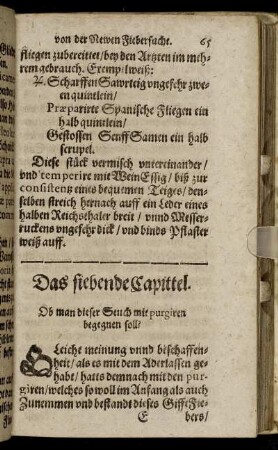 von der Newen Fiebersucht. 65
fliegen zubereitet/ bey den Artzten im meh-
rem gebrauch. Exempelweiß:
♃. Scharffen Sawrteig vngefehr zwe-
en quintlein/
Præparirte Spanische Fliegen ein
halb quintlein/
Gestossen Senff Samen ein halb
scrupel.
Diese stück vermisch vntereinander/
vnd temperire mit Wein Essig/ biß zur
consistens eines bequemen Teiges/ den-
selben streich hernach auff ein Leder eines
halben Reichsthaler breit/ vnnd Messer-
ruckens vngefehr dick/ vnd binds Pflaster
weiß auff.
Das siebende Capittel.
Ob man dieser Seuch mit purgiren
begegnen soll/
GLeiche meinung vnnd beschaffen-
heit/ als es mit dem Aderlassen ge-
habt/ hatts demnach mit den pur-
giren/ welches so woll im Anfang als auch
Zunemmen vnd bestandt dieses Gifft Fie-
E bers/